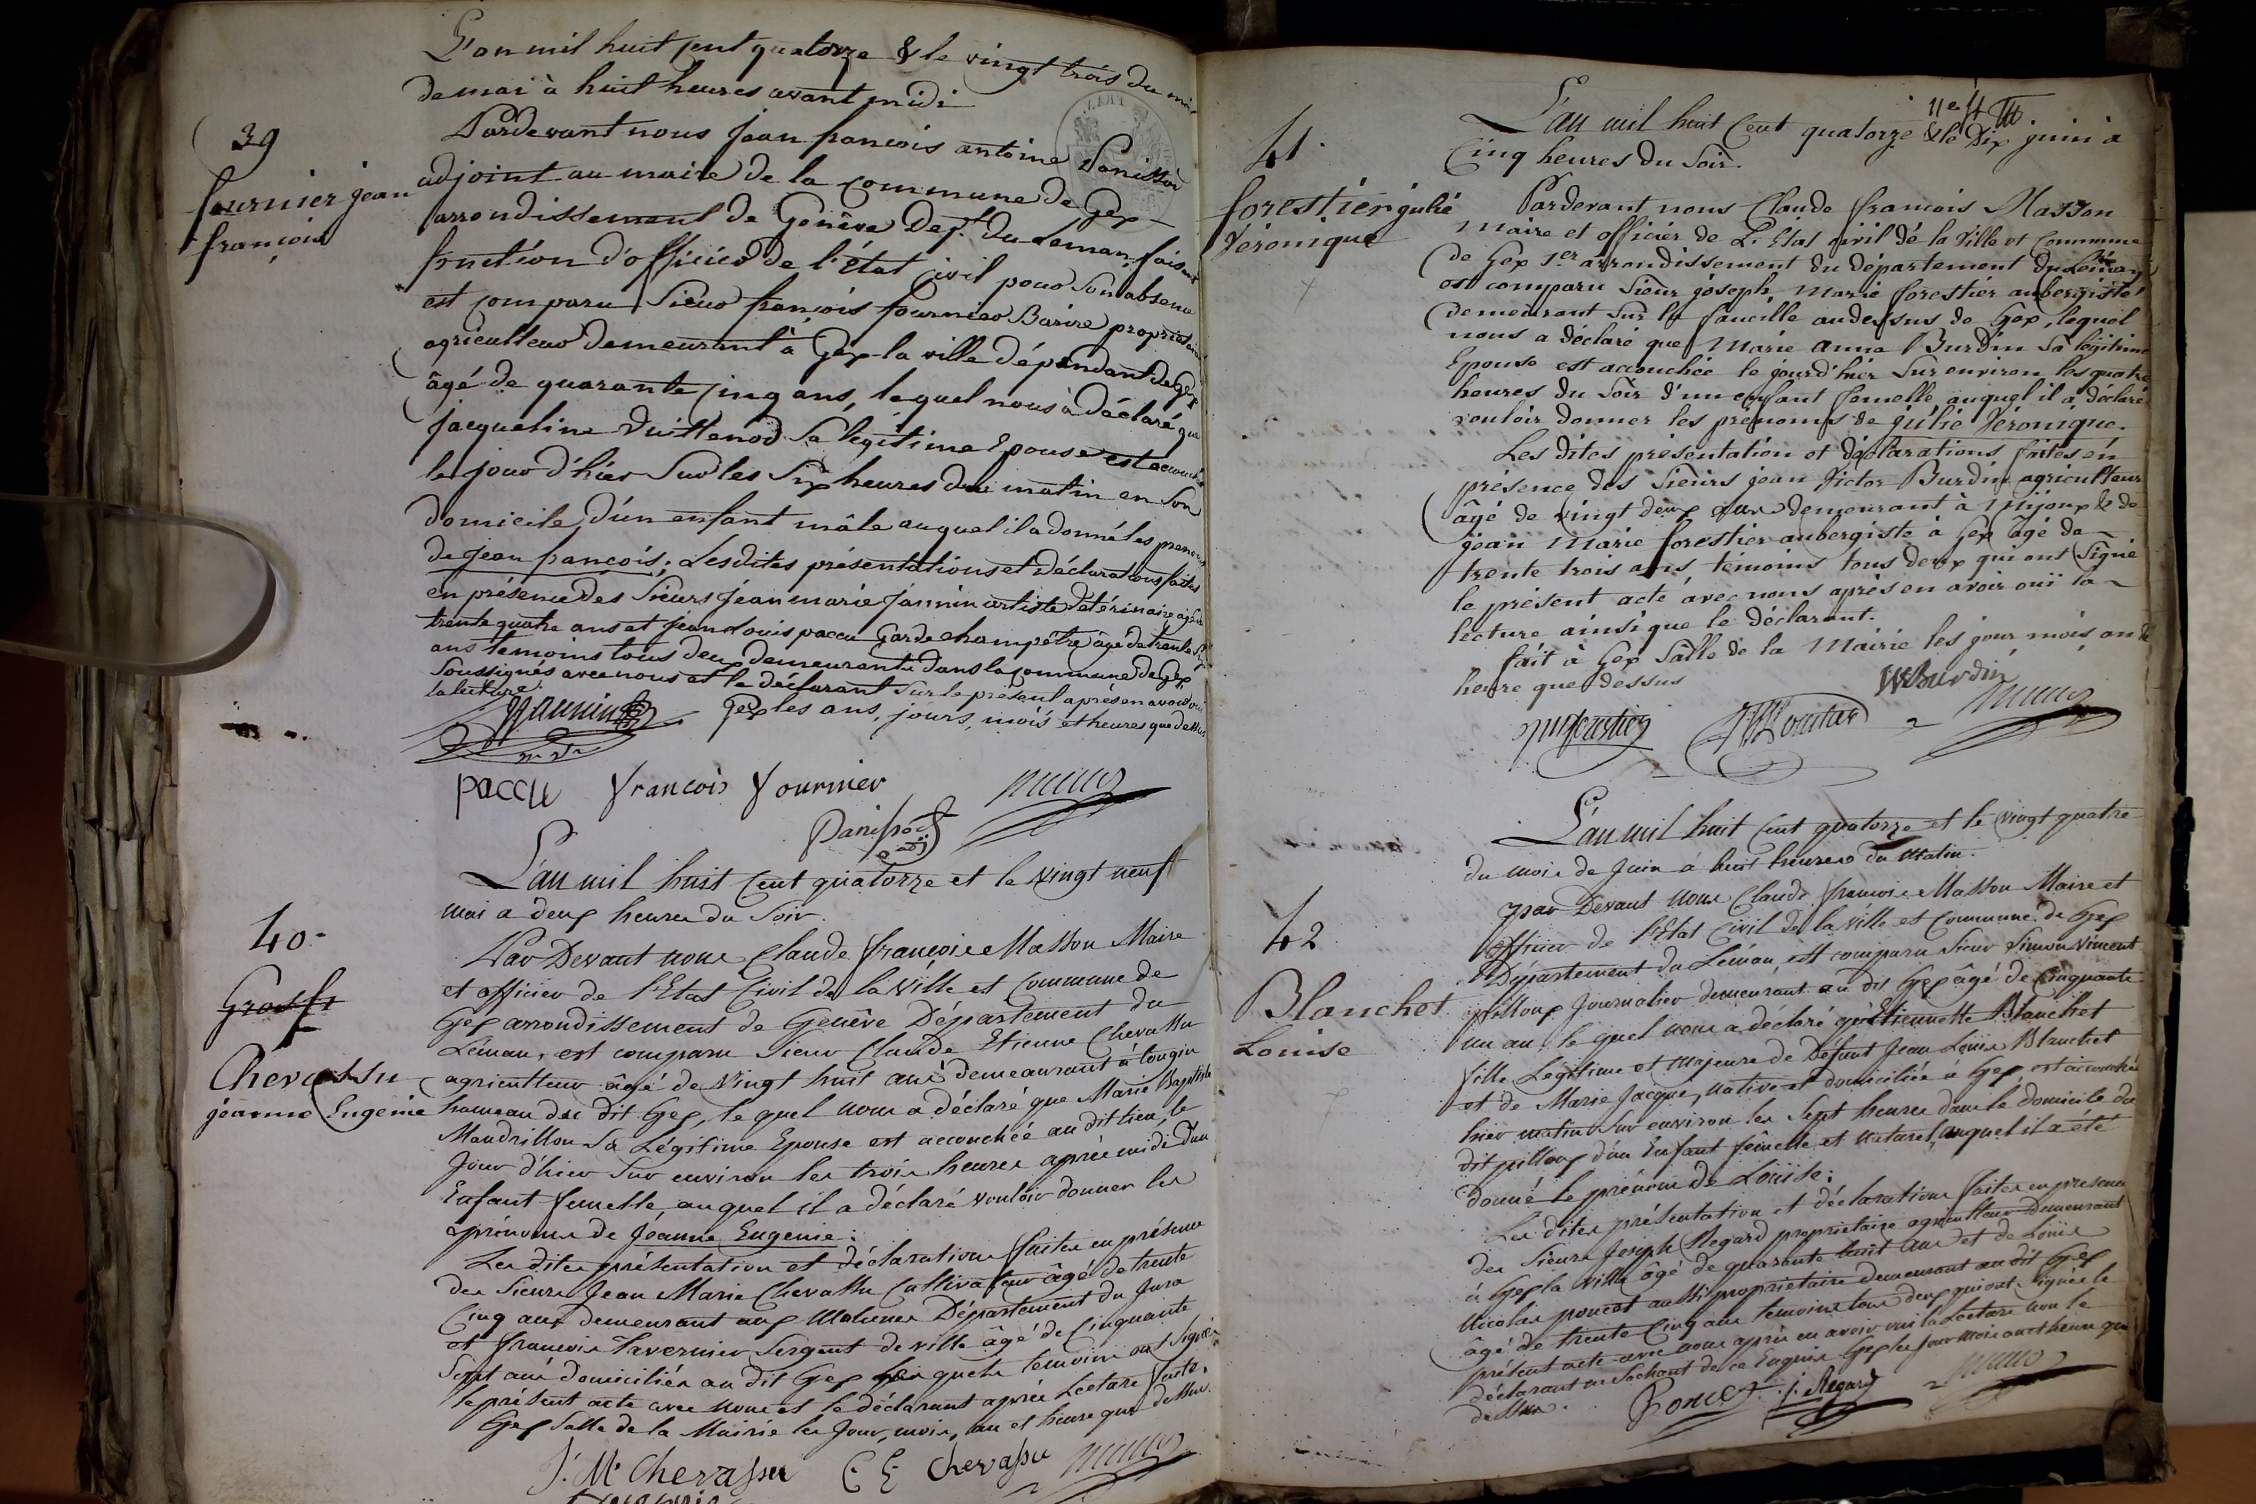 L'an mil huit cent quatorze & le vingt trois du mois
de mai à huit heures avant midi
39
fournier jean
françois
Pardevant nous jean francois antoine Panissod
adjoint au maire de la commune de Gex
arrondissement de Genève Dept. du Leman, faisant
fonction d'officier de l'état civil pour son absence
est comparu Sieur françois fournier Barire propriétaire
agriculteur demeurant à Gex-la ville dépendant de Gex
âgé de quarante cinq ans, lequel nous à déclaré que
jacqueline Vuillenod Sa légitime Epouse est accouchée
le jour d'hier Sur les Six heures du matin en Son
domicile, d'un enfant mâle auquel il a donné les prenoms
de jean françois. Lesdites présentations et déclarations faites
en présence des Sieurs jean marie jannin artiste vétérinaire agé de
trente quatre ans et jean louis paccu Garde champêtre âgé de trente
ans temoins tous deux demeurants dans la commune de Gex
Soussignés avec nous et le déclarant Sur le présent après en avoir oui
la lecture. Gex les ans, jours, mois et heures que dessus
Jannin
paccu françois fournier
Panissod
adj
L'an mil huit Cent quatorze et le vingt neuf
mai a deux heures du Soir.
40.
Chevassu
jeanne Eugenie
Par Devant nous Claude françois Masson Maire
et officier de l'Etat Civil de la Ville et Commune de
Gex arrondissement de Genêve Département du
Léman, est comparu Sieur Claude Etienne Chevassu
agriculteur âgé de vingt huit ans demeaurant à tougin
hameau du dit Gex, le quel nous a déclaré que Marie Baptiste
Mandrillon Sa Légitime Epouse est accouchée au dit lieu, le
Jour d'hier Sur environ les trois heures après midi d'un
Enfant femelle auquel il a déclaré vouloir donner les
prénoms de Jéanne Eugenie.
Les dites présentation et déclarations faites en présence
des Sieurs Jean Marie Chevassu Cultivateur âgé de trente
Cinq ans demeurant aux Molunes Département du Jura
et françois Tavernier Sergent de ville âgé de Cinquante
Sept ans domiciliés au dit Gex les quels temoins ont Signé
le présent acte avec nous et le déclarant après Lecture faite.
Gex Salle de la Mairie les Jour, mois, an et heure que dessus.
J. M. Chevassu C. E. Chevassu
41.
forestier julié
Véronique
L'an mil huit Cent quatorze & le Dix juin à
Cinq heures du Soir.
Pardevant nous Claude françois Masson
maire et officier de L'Etat Civil de la Ville et Commune
de Gex 1er arrondissement du département du Léman
est comparu Sieur joseph Marie forestier aubergiste
demeurant Sur la faucille au dessus de Gex, lequel
nous a déclaré que Marie anne Burdin Sa légitime
Epouse est accouchée le jourd'hier Sur environ les quatre
heures du Soir d'un enfant femelle auquel il a déclaré
vouloir donner les prénoms de julié Véronique.
Les dites présentation et déclarations faites en
présence des Sieurs jean Victor Burdin agriculteur
âgé de vingt deux ans demeurant à Mijoux & de
jean Marie forestier aubergiste à Gex âgé de
trente trois ans, témoins tous deux qui ont Signé
le présent acte avec nous après en avoir ouï la
lecture ainsi que le déclarant.
fait à Gex Salle de la Mairie les jour mois an &
heure que dessus
Burdin
L'an mil huit Cent quatorze et le vingt quatre
du mois de Juin à huit heures du Matin.
42
Blanchet
Louise
par Devant nous Claude françois Masson Maire et
officier de l'Etat Civil de la Ville et Commune de Gex
Département du Léman, est comparu Sieur Simon Vincent
pilloux Journalier demeurant au dit Gex âgé de Cinquante
un an, le quel nous a déclaré qu'Etiennette Blanchet
fille Légitime et Majeure de Défunt Jean Louis Blanchet
et de Marie Jacque, native et domiciliée a Gex, est accouchée
hier matin Sur environ les Sept heures dans le domicile du
dit pilloux d'un Enfant fémelle et naturel auquel il a été
donné le prénom de Louïse.
Les dites présentation et déclarations faites en presence
des Sieurs Joseph Regard proprietaire agriculteur Demeurant
à Gex la Ville âgé de quarante huit ans et de Louis
Nicolas poncet aussi proprietaire demeurant au dit Gex
âgé de trente Cinq ans temoins tous deux qui ont Signés le
présent acte avec nous après en avoir oui la Lecture non le
déclarant ne Sachant de ce Enquis. Gex les jour mois an et heure que
dessus.
Poncet J. Regard